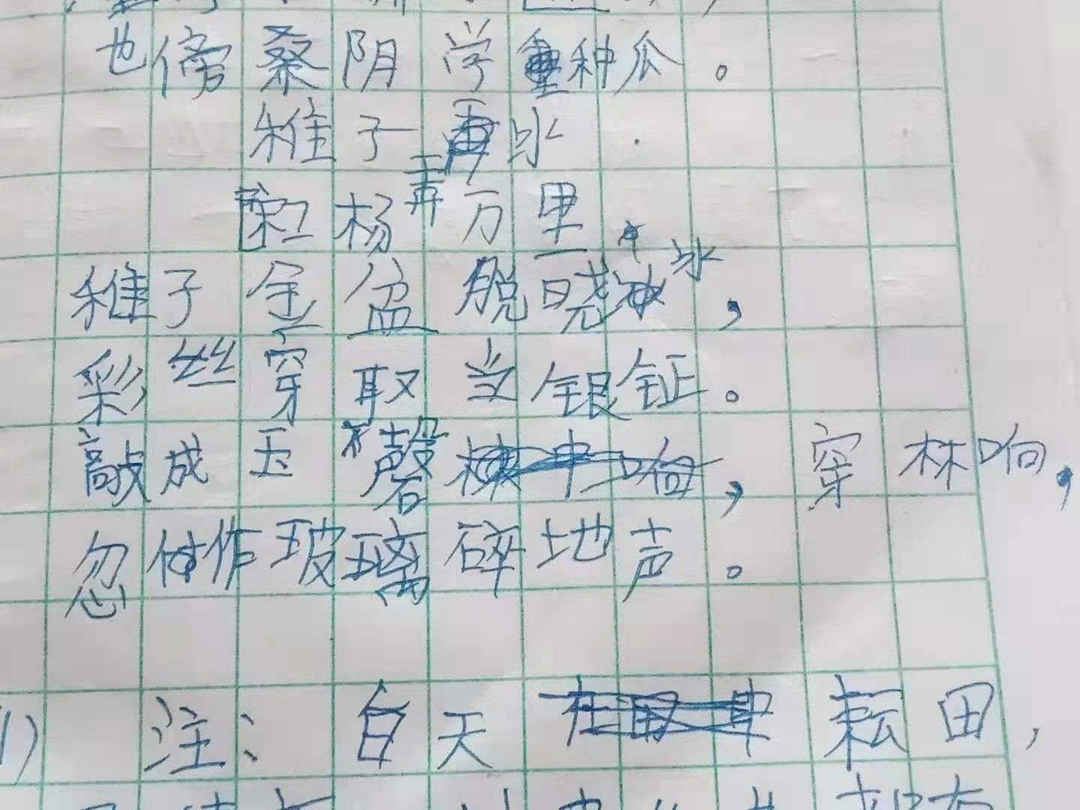 也傍桑阴学种瓜。
稚子弄冰
杨万里
稚子金盆脱晓冰，
彩丝穿取当银钲。
敲成玉磬穿林响，
忽作玻璃碎地声。
1) 注：白天耘田，